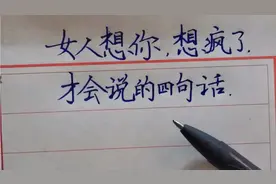 女人想你,想疯了.
才会说的四句话.